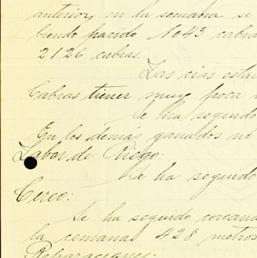 anterior, ni la semana se
biendo parido No 43 cabra
2126 cabras.
Las crias estan
Cabras tener muy poca
Se ha seguido
En los demas ganados no
Labor de Riego:
Se ha seguido
Cerco:
Se ha seguido cercan
la semana 428 metros
Reparaciones: